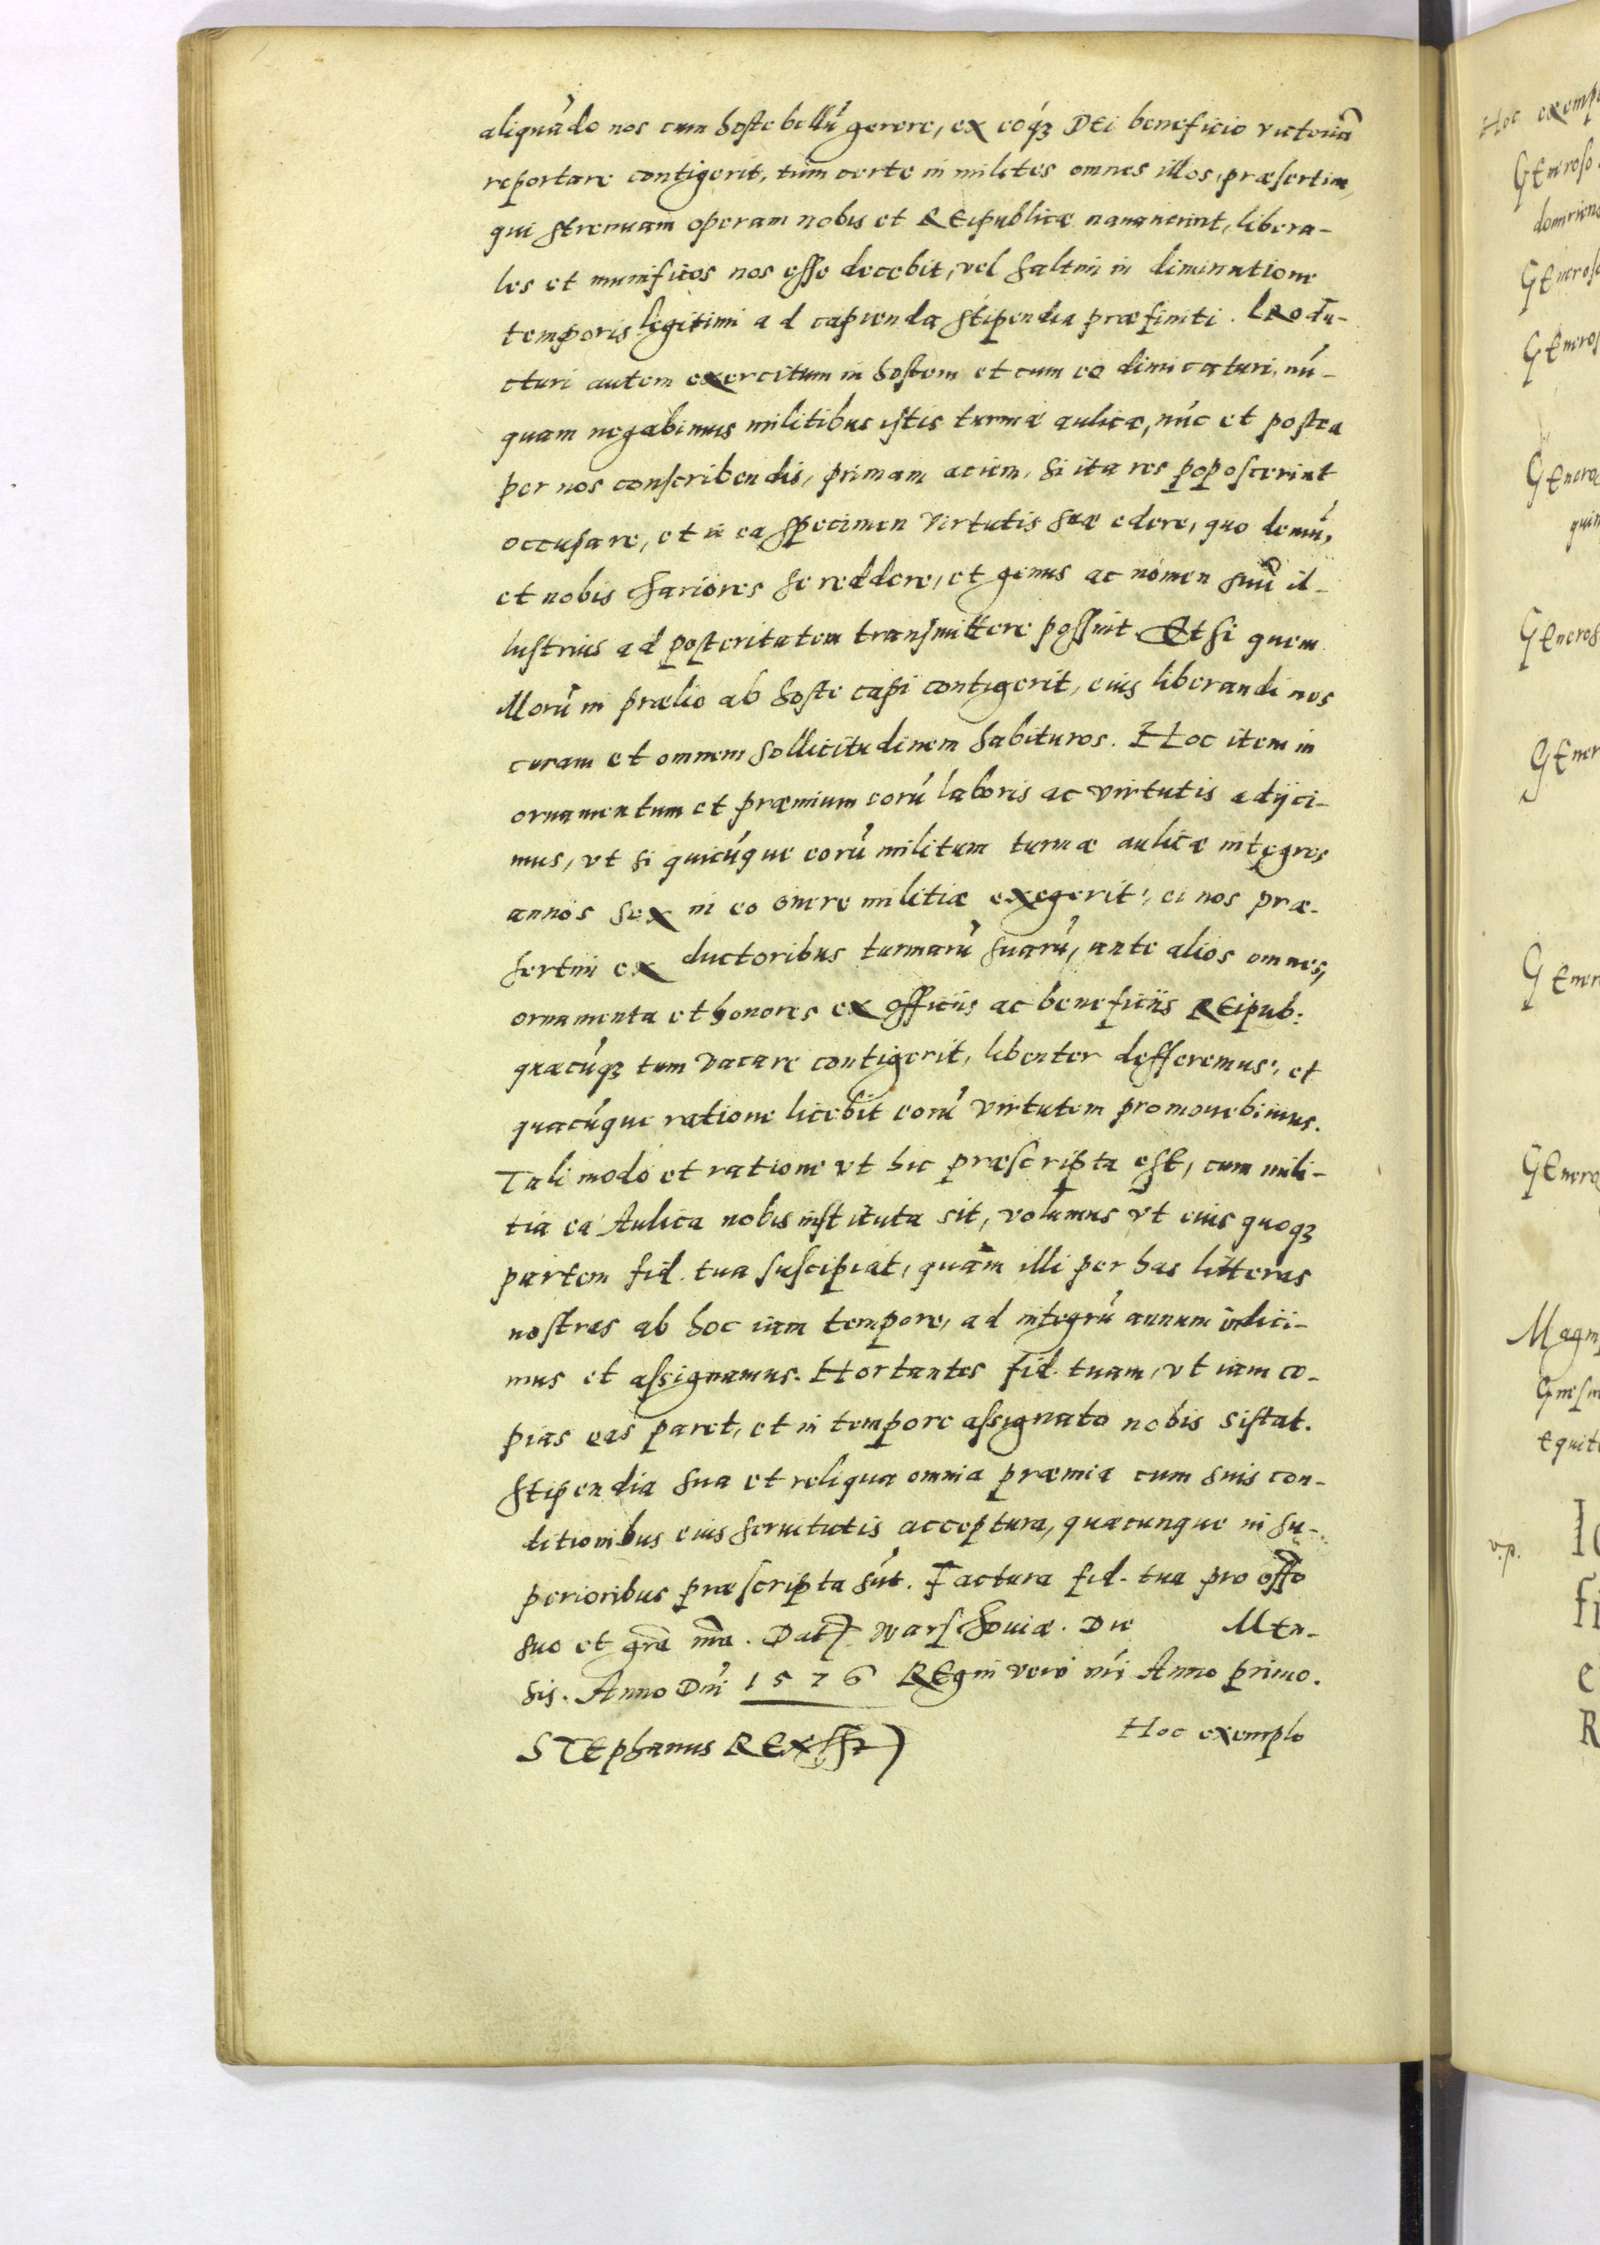 aliquãdo nos cum hoste bellũ gerere, ex eóq₃ DEi beneficio victoriã
reportare contigerit, tum certe in milites omnes illos, præsertim,
qui strenuam operam nobis et REipublicæ nauauerint, libera-
les et munificos nos esse decebit, vel saltim in diminutione
temporis legitimi ad capienda stipendia præfiniti. PRodu-
cturi autem exercitum in hostem et cum eo dimicaturi, nũ-
quam negabimus militibus istis turmæ aulicæ, nũc et postea
per nos conscribendis, primam aciem, si ita res poposcerint
occupare, et ĩ ea specimen virtutis suæ edere, quo demũ,
et nobis chariores se reddere, et genus ac nomen suũ il-
lustrius ad posteritatem transmittere possint. Et si quem
illorũ in prælio ab hoste capi contigerit, eius liberandi nos
curam et omnem sollicitudinem habituros. Hoc item in
ornamentum et præmium eorũ laboris ac virtutis adijci-
mus, vt si quicũque eorũ militum turmæ aulicæ integros
annos sex in eo onere militiæ exegerit, ei nos præ-
sertim ex ductoribus turmarũ suarũ, ante alios omnes,
ornamenta et honores ex officiis ac beneficiis REipub:
quæcũq₃ tum vacare contigerit, libenter defferemus, et
quacũque ratione licebit eorũ virtutem promouebimus.
Tali modo et ratione vt hic præscripta est, cum mili-
tia ea Aulica nobis instituta sit, volumus vt eius quoq₃
partem fid. tua suscipiat, quam illi per has litteras
nostras ab hoc iam tempore, ad integrũ annum indici-
mus et assignamus. Hortantes fid. tuam, vt iam co-
pias eas paret, et in tempore assignato nobis sistat.
Stipendia sua et reliqua omnia præmia cum suis con-
ditionibus eius seruitutis acceptura, quæcunque in su-
perioribus præscripta sũt. Factura fid. tua pro offo
suo et gra nra. Dat Warschouiæ. Die Men-
sis. Anno Dni 1576 REgni vero nri Anno primo.
STEphanus REx sst
Hoc exemplo
Hoc
GEneroso
GEneros
GEner
v.p.